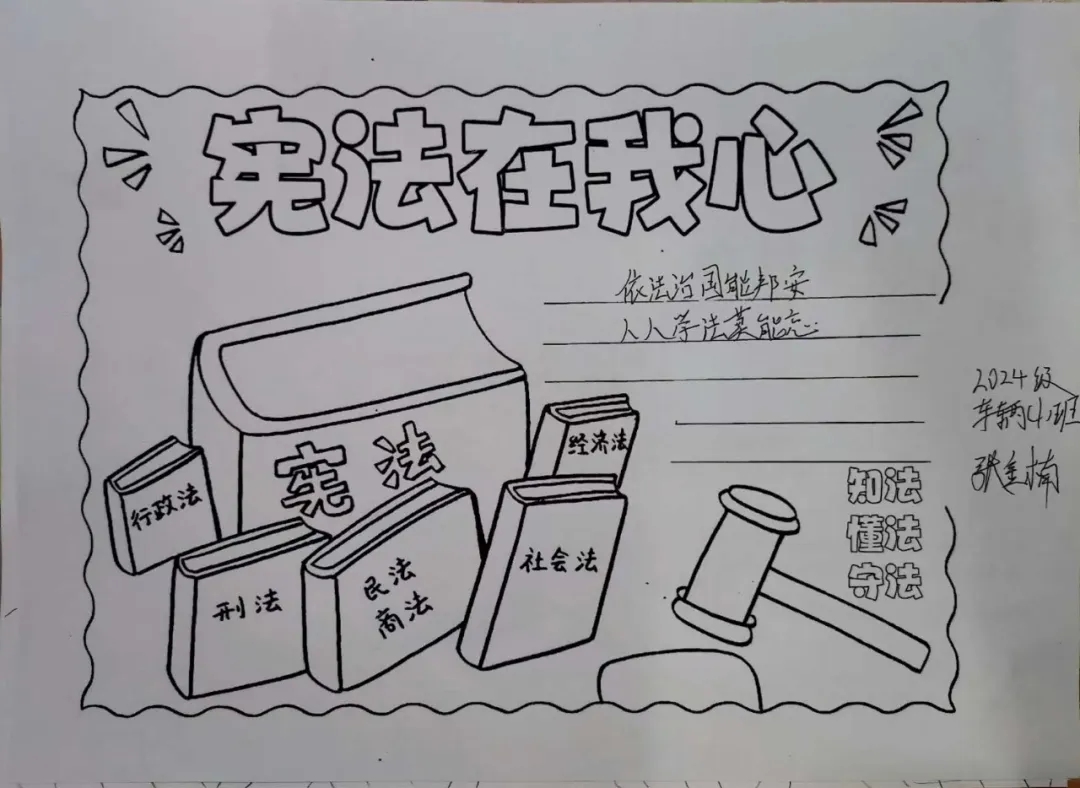 宪法在我心
依法治国能邦安
人人学法莫能忘
2024级
车辆4班
宪法
经济法
行政法
社会法
刑法
民法
商法
知法
懂法
守法